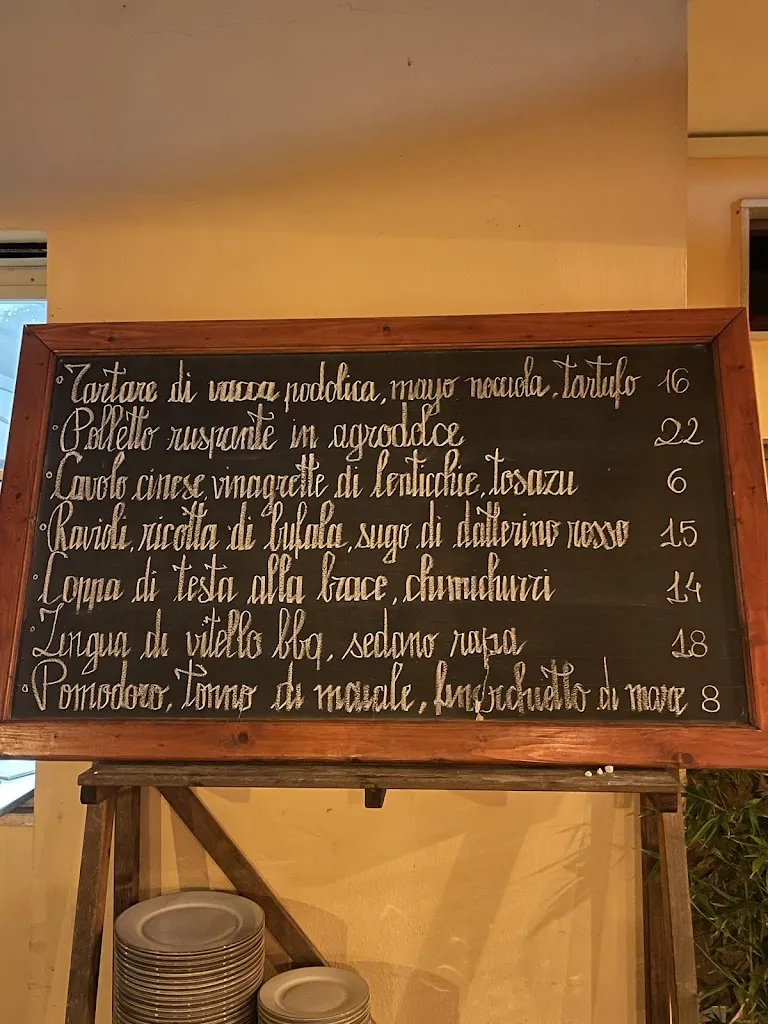 Tartare di vacca podolica, mayo nocciola, tartufo 16
Polletto ruspante in agrodolce 22
Cavolo cinese, vinagrette di lenticchie, tosazu 6
Ravioli, ricotta di bufala, sugo di datterino rosso 15
Coppa di testa alla brace, chimichurri 14
Lingua di vitello bbq, sedano rapa 18
Pomodoro, tonno di maiale, finocchietto di mare 8